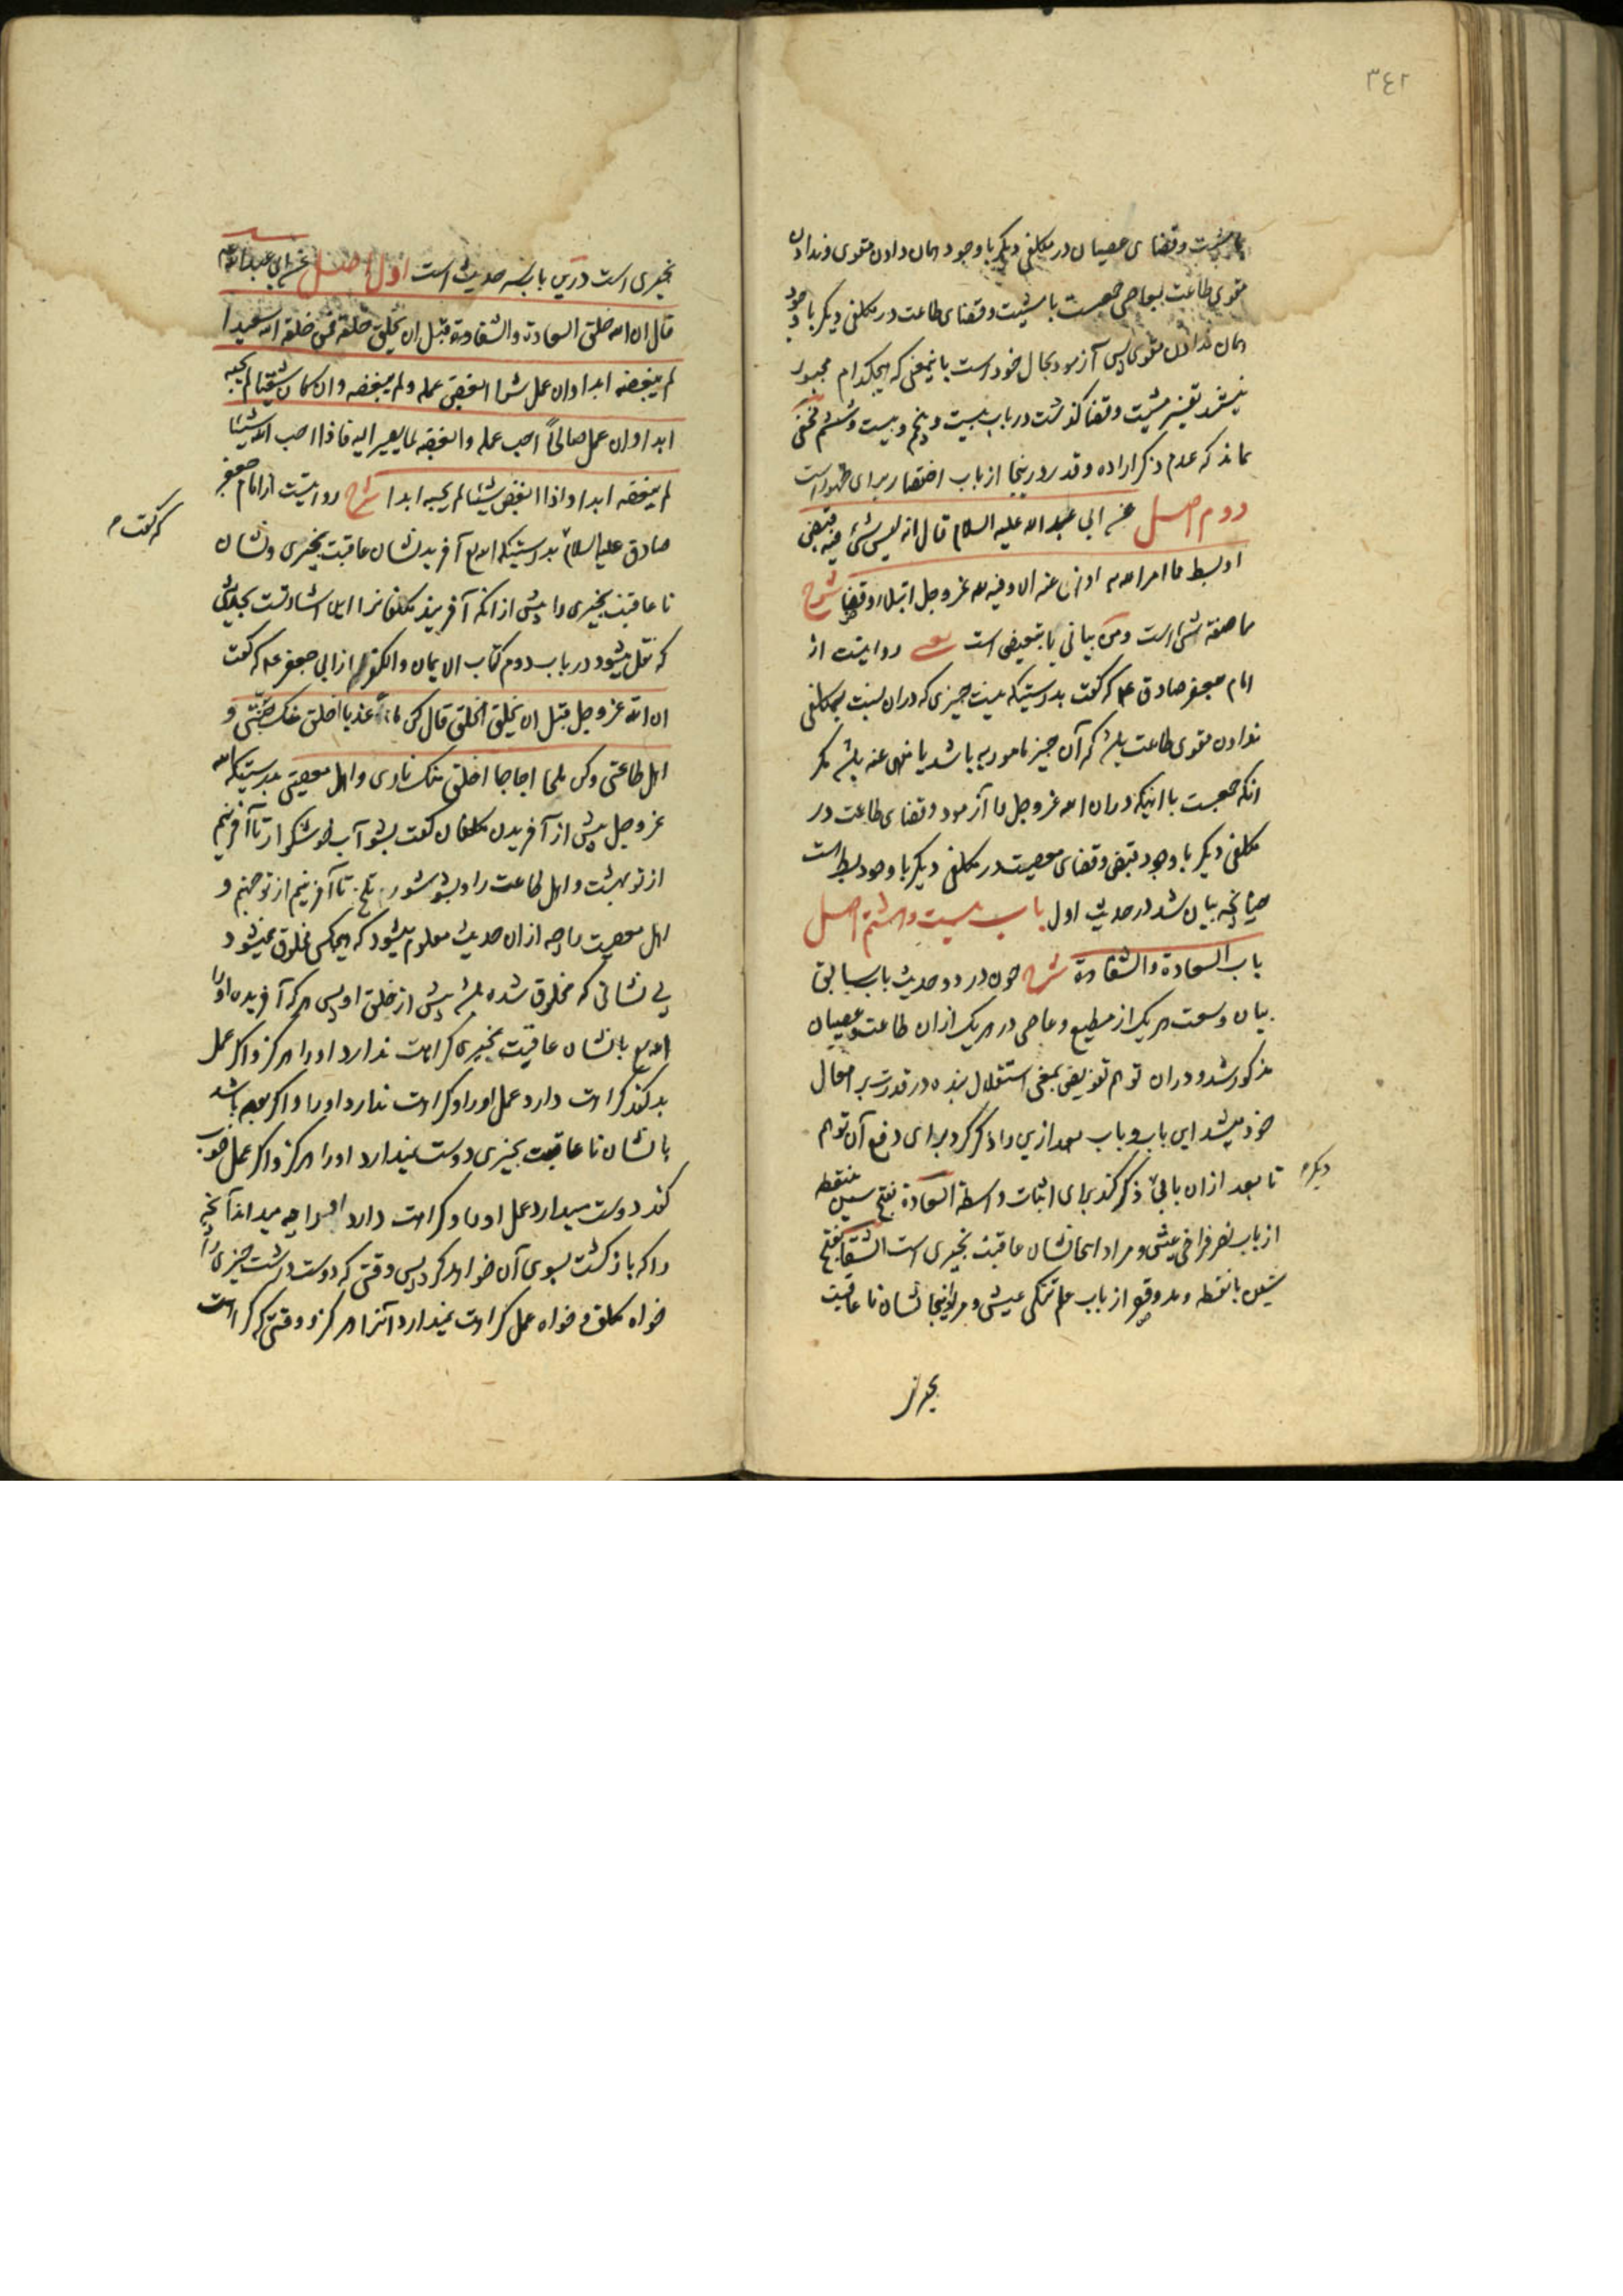 ٣٤٢
با مشیت و قضای عصیان در مکلفی دیگر با وجود همان دادن مقوی و ندادن
مقوی طاعت بعاصی جمعست با مشیت و قضای طاعت در مکلفی دیگر با وجود
همان ندادن مقوی پس آزمود بحال خود است باینمعنی که هیچکدام مجبور
نیستند تفسیر مشیت و قضا گذشت در باب بیست و پنجم و بیست و ششم مخفی
نماند که عدم ذکر اراده و قدر در اینجا از باب اختصار برای ظهور است
دوم اصل عن ابی عبد الله علیه السلام قال انه لیس شیء فیه قبض
او بسط مما امر الله به او نهی عنه الا وفیه لله عز وجل ابتلاء وقضاء شرح
مما صفة شیء است و من بیانی یا تبعیضی است یعنی روایتست از
امام جعفر صادق ع م که گفت بدرستیکه نیست چیزی که در ان نسبت بمکلفی
ندادن مقوی طاعت باشد که آن چیز مامور به باشد یا منهی عنه باشد مگر
انکه جمعست با اینکه در ان الله عز وجل را آزمود و قضای طاعت در
مکلفی دیگر با وجود قبض و قضای معصیت در مکلفی دیگر با وجود بسط است
چنانچه بیان شد در حدیث اول باب بیست و هشتم اصل
باب السعادة والشقاوة شرح چون در دو حدیث باب سابق
بیان وسعت هر یک از مطیع و عاصی در هر یک از ان طاعت و عصیان
مذکور شد و در ان توهم تفویض بمعنی استقلال بنده در قدرت بر افعال
خود میشد این باب و باب بعد ازین را ذکر کرد برای دفع آن توهم
تا بعد از ان بابی دیگر ذکر کند برای اثبات واسطه السعادة بفتح سین بی نقطه
از باب نصر فراخی عیش و مراد اینجا نشان عاقبت بخیری است الشقاء بفتح
شین با نقطه و مد و قصر از باب علم تنگی عیش و مراد اینجا نشان نا عاقبت
بخیری
بخیری است درین باب سه حدیث است اول اصل عن ابی عبد الله ع م
قال ان الله خلق السعادة والشقاوة قبل ان یخلق خلقه فمن خلقه الله سعیدا
لم یبغضه ابدا وان عمل شرا ابغض عمله ولم یبغضه وان کان شقیا لم یحبه
ابدا وان عمل صالحا احب عمله وابغضه لما یصیر الیه فاذا احب الله شیئا
لم یبغضه ابدا واذا ابغض شیئا لم یحبه ابدا شرح روایتست از امام جعفر
صادق علیه السلام که گفت بدرستیکه الله تع آفرید نشان عاقبت بخیری و نشان
نا عاقبت بخیری را پیش از انکه آفریند مکلفانرا این اشارتست بحدیثی
که نقل میشود در باب دوم کتاب الایمان والکفر از ابی جعفر ع م که گفت
ان الله عز وجل قبل ان یخلق الخلق قال کن ماء عذبا اخلق منک جنتی و
اهل طاعتی وکن ملحا اجاجا اخلق منک ناری واهل معصیتی بدرستیکه الله
عز وجل پیش از آفریدن مکلفان گفت بشو آب خوشگوار تا آفرینم
از تو بهشت و اهل طاعت را و بشو شور تلخ تا آفرینم از تو جهنم و
اهل معصیت را چه از ان حدیث معلوم میشود که هیچکس مخلوق نمیشود
بی نشانی که مخلوق شده باشد پیش از خلق او پس هر که آفریده او را
الله تع با نشان عاقبت بخیری کراهت ندارد او را هرگز و اگر عمل
بد کند کراهت دارد عمل او را و کراهت ندارد او را و اگر بوده باشد
با نشان نا عاقبت بخیری دوست نمیدارد او را هرگز و اگر عمل خوب
کند دوست میدارد عمل او را و کراهت دارد او را چه میداند آنچه
را که بازگشت بسوی آن خواهد کرد پس وقتی که دوست داشت چیزی را
خواه مکلف و خواه عمل کراهت نمیدارد آنرا هرگز و وقتی که کراهت